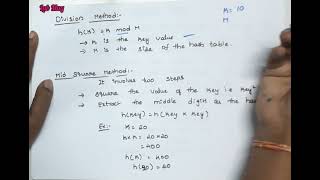 Division Method:-
h(K) = K mod M
→ K is the key value
→ M is the size of the hash table.
K = 10
M
Mid Square Method:-
It involves two steps
Square the value of the key i.e key²
Extract the middle digits as the has
h(key) = h(key x key)
Ex:- K = 20
K×K = 20×20
= 400
h(K) = 400